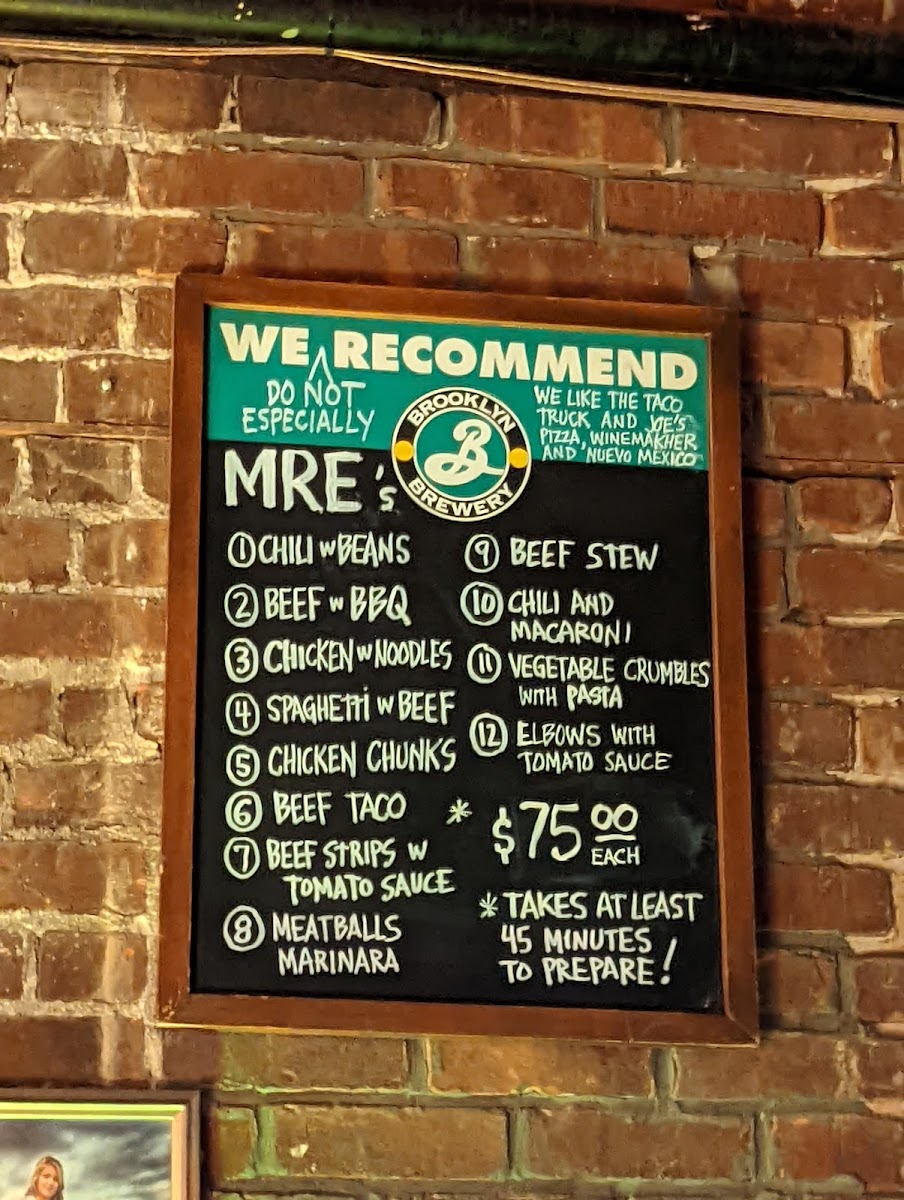 WE RECOMMEND
DO NOT
ESPECIALLY
WE LIKE THE TACO
TRUCK AND JOE'S
PIZZA, WINEMAKHER
AND NUEVO MEXICO
BROOKLYN
B
BREWERY
MRE's
1 CHILI w BEANS
2 BEEF w BBQ
3 CHICKEN w NOODLES
4 SPAGHETTi w BEEF
5 CHICKEN CHUNKS
6 BEEF TACO
7 BEEF STRIPS W
TOMATO SAUCE
8 MEATBALLS
MARINARA
9 BEEF STEW
10 CHILI AND
MACARONI
11 VEGETABLE CRUMBLES
WITH PASTA
12 ELBOWS WITH
TOMATO SAUCE
* $75.00
EACH
* TAKES AT LEAST
45 MINUTES
TO PREPARE!